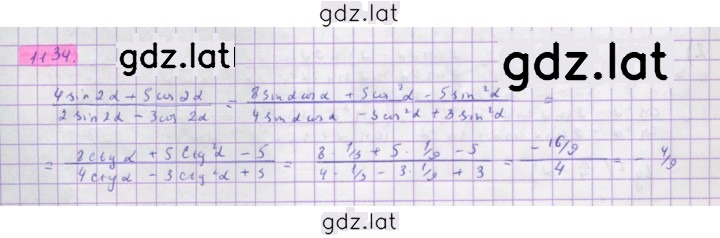 gdz.lat
1134.
gdz.lat
gdz.lat
(4 sin2α + 5 cos 2α)/(2 sin 2α - 3 cos 2α) = (8 sinα cosα + 5 cos²α - 5 sin²α)/(4 sinα cosα - 3 cos²α + 3 sin²α) =
= (8 ctgα + 5 ctg²α - 5)/(4 ctgα - 3 ctg²α + 3) = (8 · 1/3 + 5 · 1/9 - 5)/(4 · 1/3 - 3 · 1/9 + 3) = (-16/9)/4 = - 4/9
gdz.lat
gdz.lat